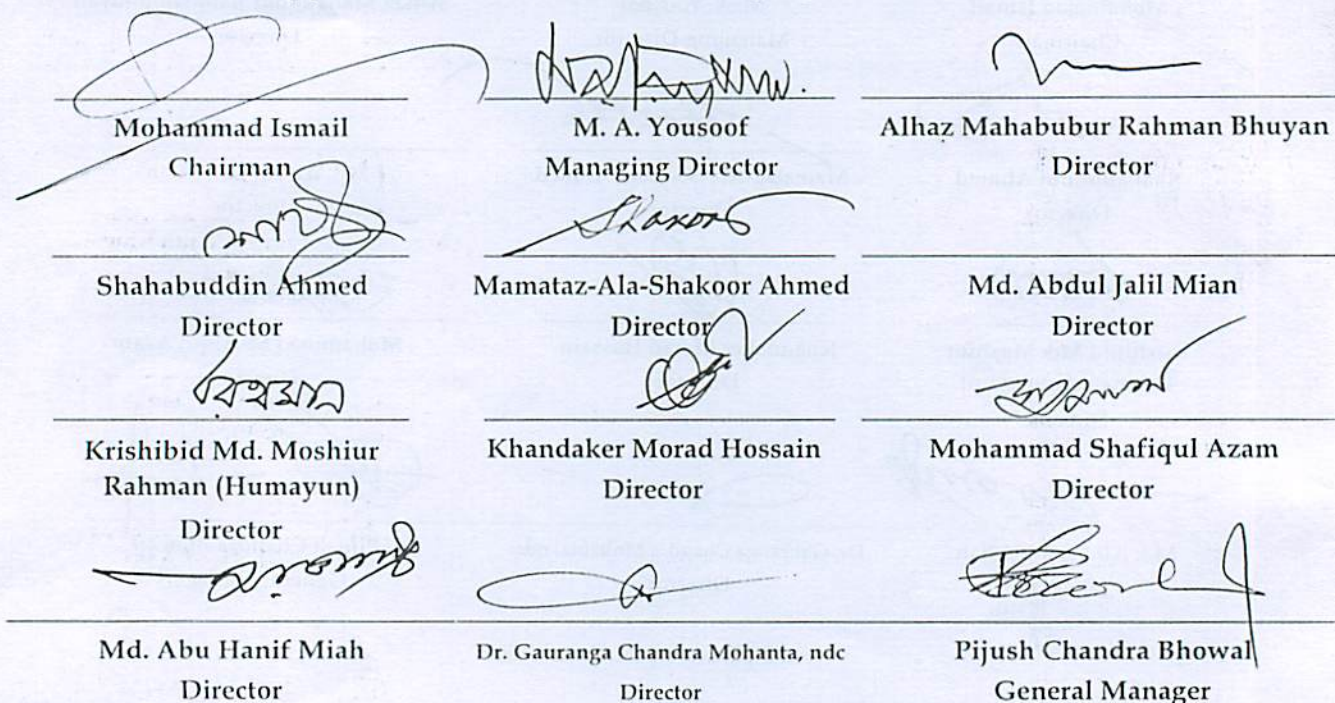 Mohammad Ismail
Chairman
M. A. Yousoof
Managing Director
Alhaz Mahabubur Rahman Bhuyan
Director
Shahabuddin Ahmed
Director
Mamataz-Ala-Shakoor Ahmed
Director
Md. Abdul Jalil Mian
Director
রহমান
Krishibid Md. Moshiur
Rahman (Humayun)
Director
Khandaker Morad Hossain
Director
Mohammad Shafiqul Azam
Director
Md. Abu Hanif Miah
Director
Dr. Gauranga Chandra Mohanta, ndc
Director
Pijush Chandra Bhowal
General Manager